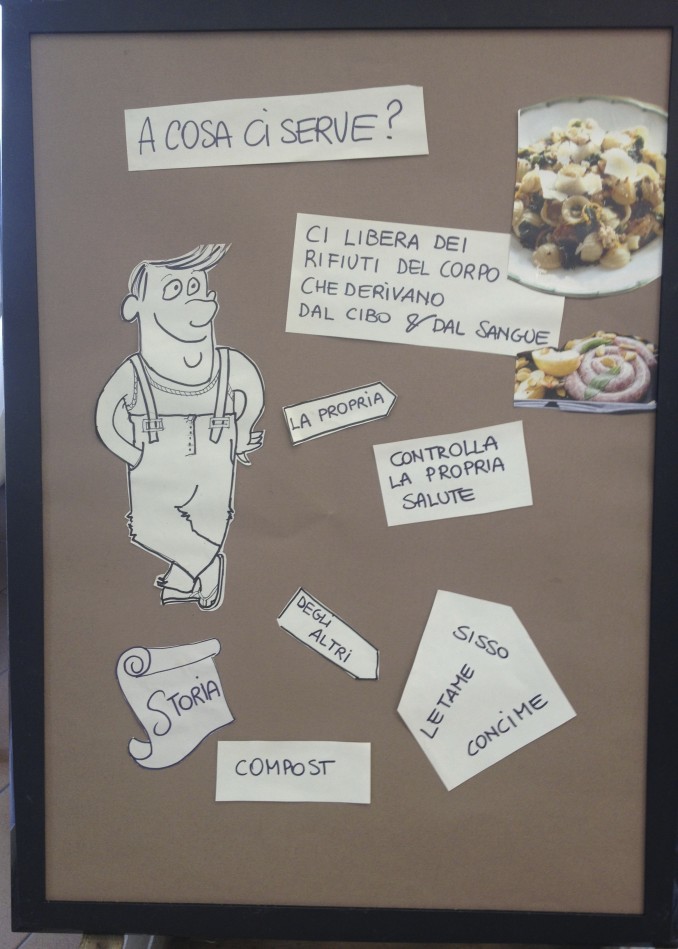 A COSA CI SERVE?
CI LIBERA DEI
RIFIUTI DEL CORPO
CHE DERIVANO
DAL CIBO & DAL SANGUE
LA PROPRIA
CONTROLLA
LA PROPRIA
SALUTE
DEGLI
ALTRI
SISSO
LETAME
CONCIME
STORIA
COMPOST